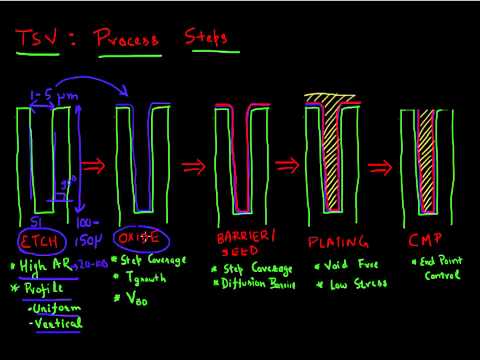 TSV : Process Steps
1-5 μm
90°
Si
100-
150μ
ETCH
OXIDE
BARRIER/
SEED
PLATING
CMP
* High AR
* Profile
- Uniform
- Vertical
* Step Coverage
* Tgrowth
* VBD
* Step Coverage
* Diffusion Barrier
* Void Free
* Low Stress
* End Point
Control